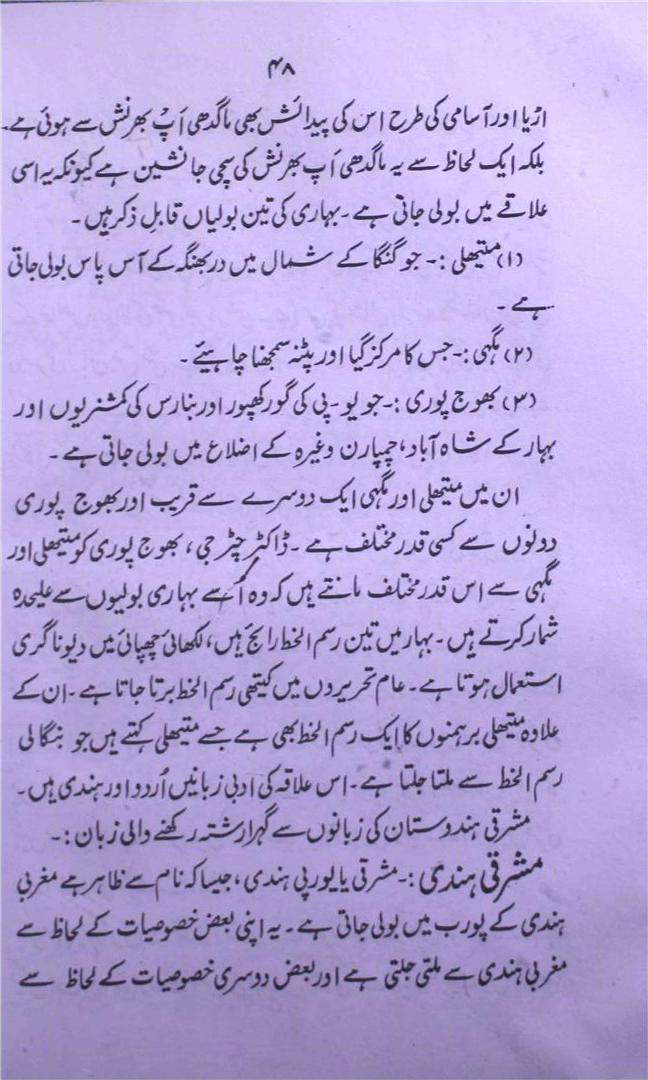 ۴۸
اڑیا اور آسامی کی طرح اس کی پیدائش بھی ماگدھی اَپ بھرنش سے ہوئی ہے۔
بلکہ ایک لحاظ سے یہ ماگدھی اَپ بھرنش کی سچی جانشین ہے کیونکہ یہ اسی
علاقے میں بولی جاتی ہے۔ بہاری کی تین بولیاں قابلِ ذکر ہیں۔
(۱) میتھلی :۔ جو گنگا کے شمال میں دربھنگہ کے آس پاس بولی جاتی
ہے۔
(۲) مگہی :۔ جس کا مرکز گیا اور پٹنہ سمجھنا چاہیئے۔
(۳) بھوج پوری :۔ جو یو۔پی کی گورکھپور اور بنارس کی کمشنریوں اور
بہار کے شاہ آباد، چمپارن وغیرہ کے اضلاع میں بولی جاتی ہے۔
ان میں میتھلی اور مگہی ایک دوسرے سے قریب اور بھوج پوری
دونوں سے کسی قدر مختلف ہے۔ ڈاکٹر چٹرجی، بھوج پوری کو میتھلی اور
مگہی سے اس قدر مختلف مانتے ہیں کہ وہ اُسے بہاری بولیوں سے علیحدہ
شمار کرتے ہیں۔ بہار میں تین رسم الخط رائج ہیں، لکھائی چھپائی میں دیوناگری
استعمال ہوتا ہے۔ عام تحریروں میں کیتھی رسم الخط برتا جاتا ہے۔ ان کے
علاوہ میتھلی برہمنوں کا ایک رسم الخط بھی ہے جسے میتھلی کہتے ہیں جو بنگالی
رسم الخط سے ملتا جلتا ہے۔ اس علاقہ کی ادبی زبانیں اُردو اور ہندی ہیں۔
مشرقی ہندوستان کی زبانوں سے گہرا رشتہ رکھنے والی زبان :۔
مشرقی ہندی :۔ مشرقی یا پورپی ہندی، جیسا کہ نام سے ظاہر ہے مغربی
ہندی کے پورب میں بولی جاتی ہے۔ یہ اپنی بعض خصوصیات کے لحاظ سے
مغربی ہندی سے ملتی جلتی ہے اور بعض دوسری خصوصیات کے لحاظ سے